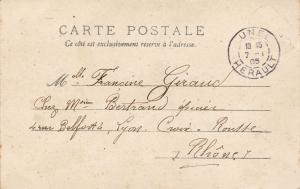 CARTE POSTALE
Ce côté est exclusivement réservé à l'adresse.
LUNEL
7
05
HERAULT
Mlle Francine Giraud
Chez Mme Bertrand épicier
4 rue Belfort Lyon Croix-Rousse
Rhône